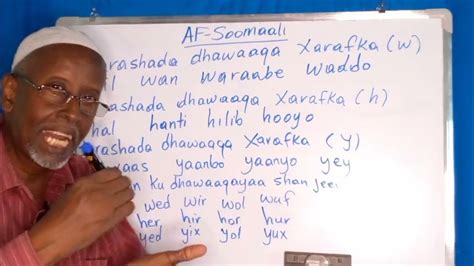 AF-Soomaali
rashada dhawaaqa Xarafka (w)
wan waraabe waddo
ashada dhawaaqa Xarafka (h)
hal hanti hilib hooyo
rashada dhawaaqa Xarafka (y)
yaanbo yaanyo yey
ku dhawaaqayaa shan jeer
wed wir wol waf
her hir hor hur
yed yix yol yux